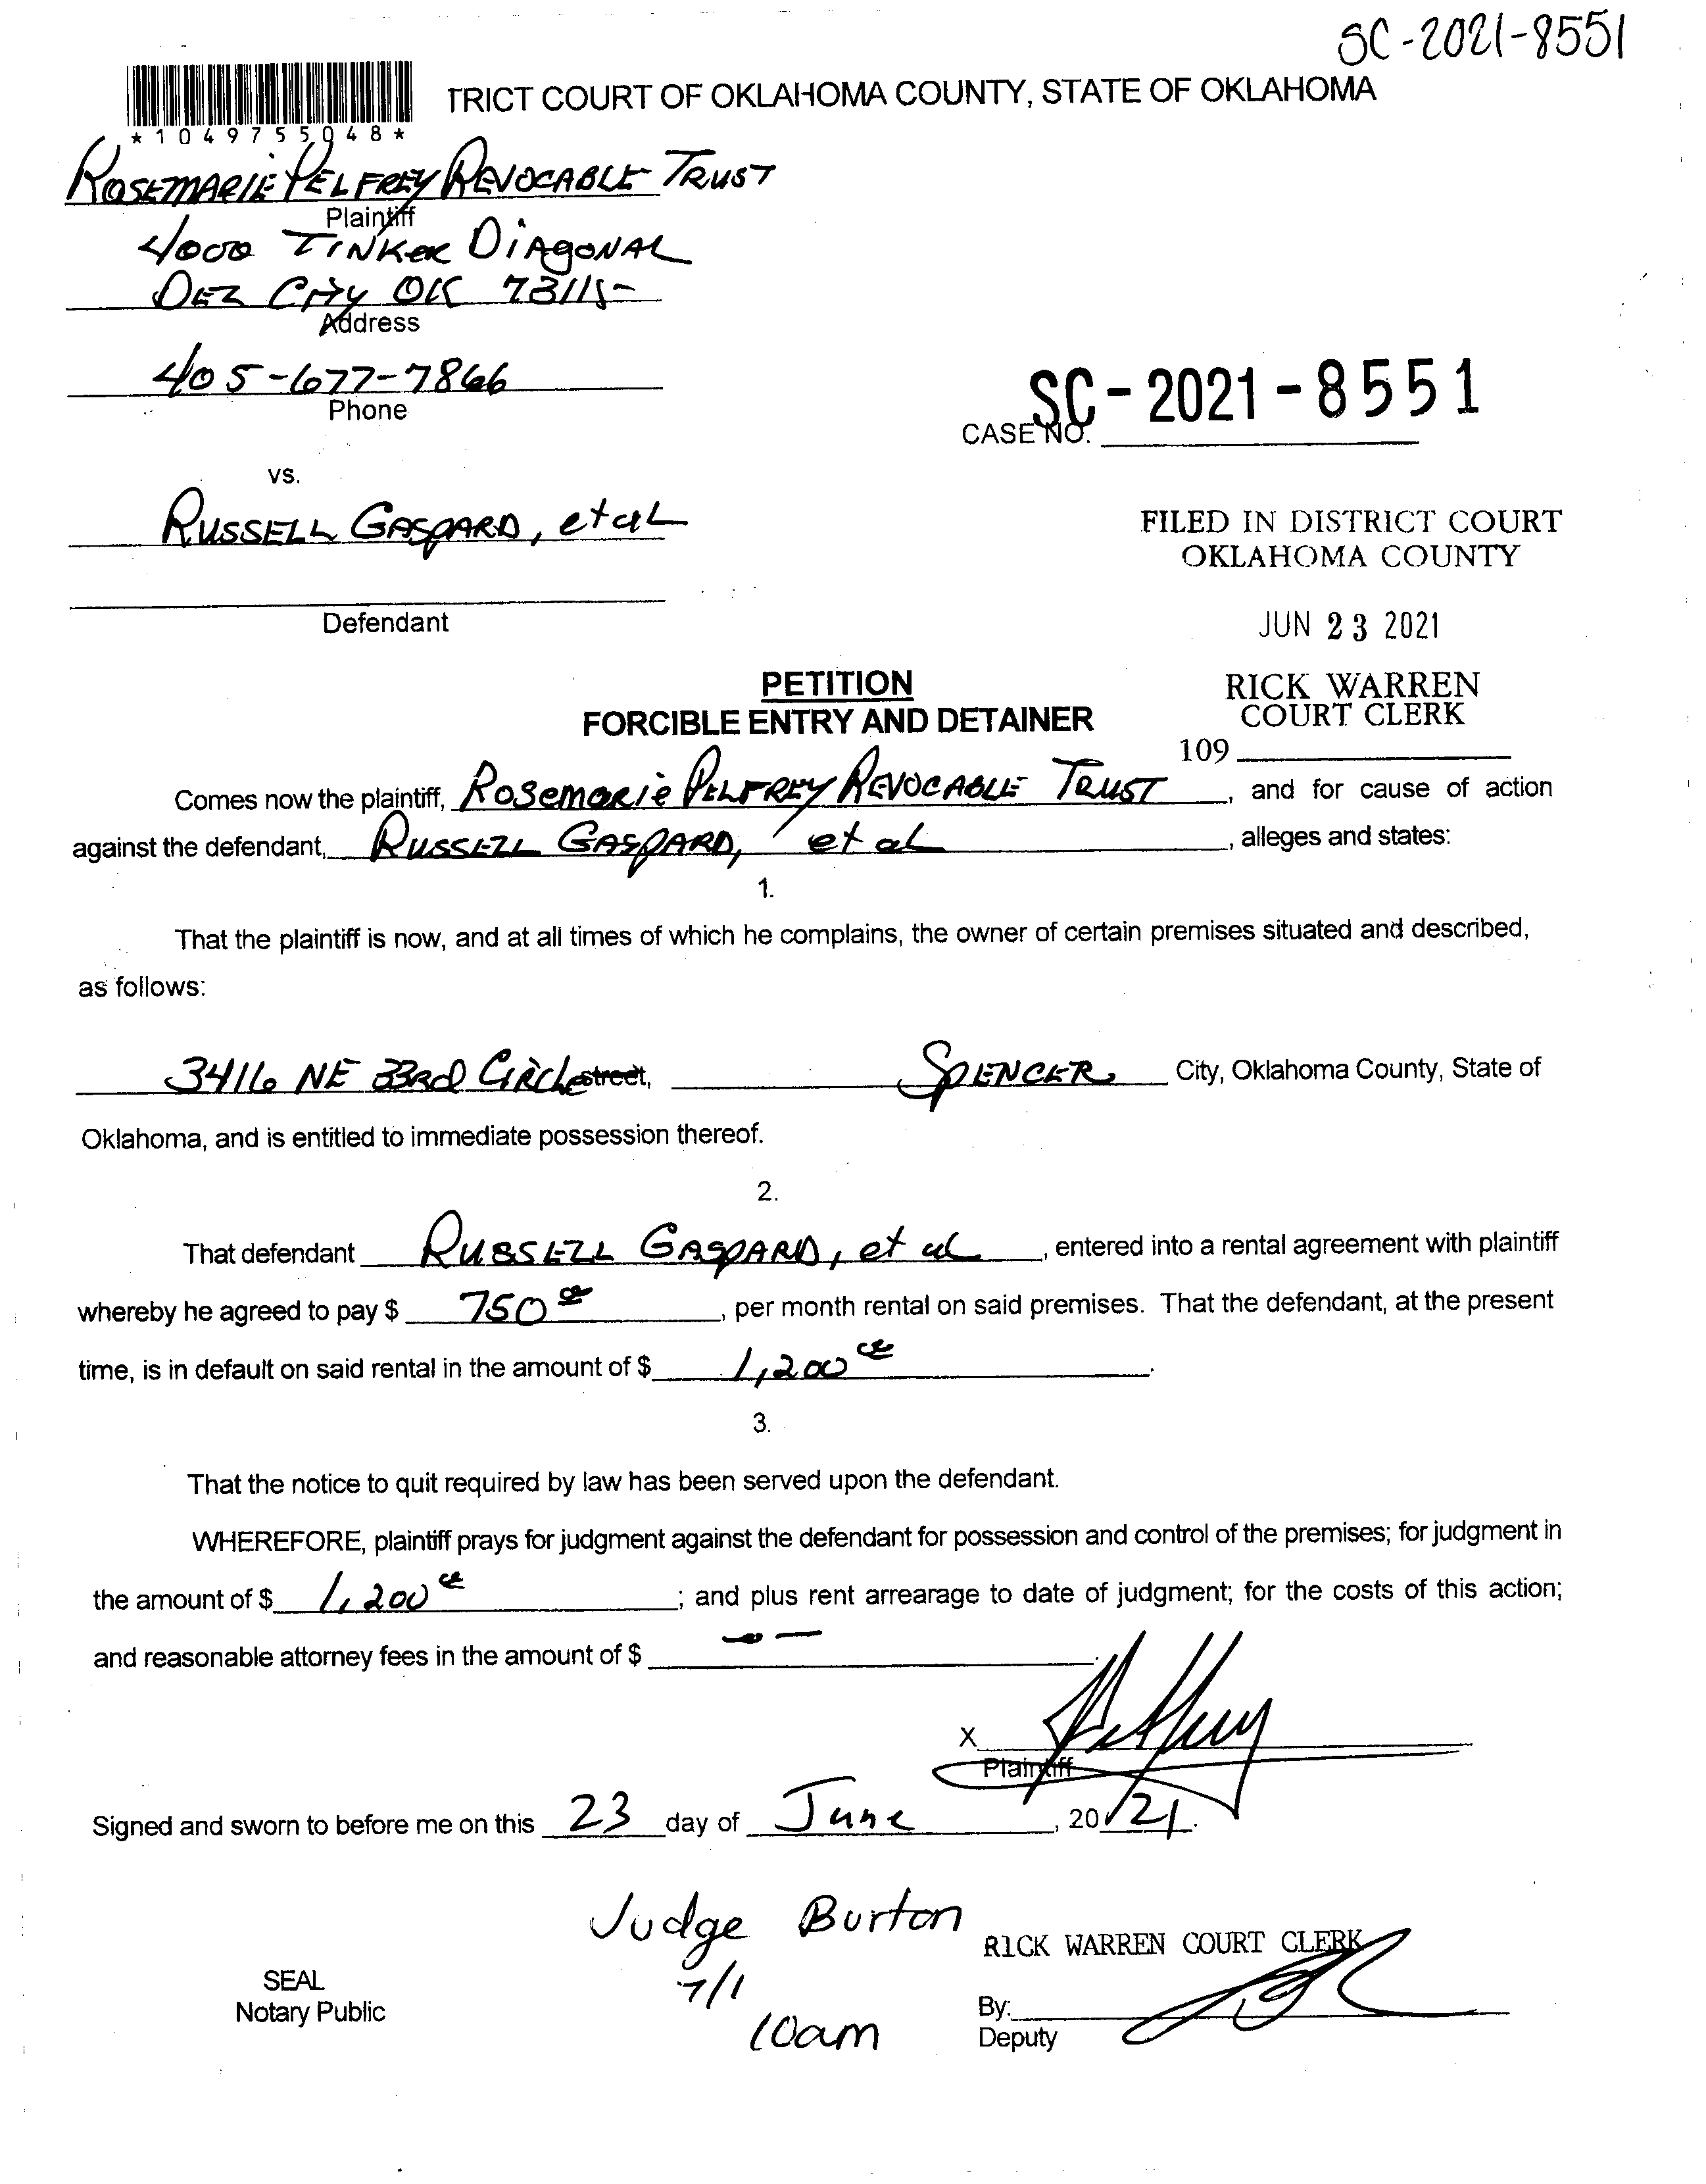 SC-2021-8551
TRICT COURT OF OKLAHOMA COUNTY, STATE OF OKLAHOMA
*1049755048*
ROSEMARIE PELFREY REVOCABLE TRUST
Plaintiff
4000 TINKER DIAGONAL
DEL City OK 73115
Address
405-677-7866
Phone
SC-2021-8551
CASE NO.
vs.
RUSSELL GASPARD, et al
FILED IN DISTRICT COURT
OKLAHOMA COUNTY
Defendant
JUN 23 2021
PETITION
RICK WARREN
FORCIBLE ENTRY AND DETAINER
COURT CLERK
109
Comes now the plaintiff, Rosemarie PELFREY REVOCABLE TRUST, and for cause of action
against the defendant, RUSSELL GASPARD, et al, alleges and states:
1.
That the plaintiff is now, and at all times of which he complains, the owner of certain premises situated and described,
as follows:
3416 NE 33RD Circle street, SPENCER City, Oklahoma County, State of
Oklahoma, and is entitled to immediate possession thereof.
2.
That defendant RUSSELL GASPARD, et al, entered into a rental agreement with plaintiff
whereby he agreed to pay $ 750, per month rental on said premises. That the defendant, at the present
time, is in default on said rental in the amount of $ 1,200.
3.
That the notice to quit required by law has been served upon the defendant.
WHEREFORE, plaintiff prays for judgment against the defendant for possession and control of the premises; for judgment in
the amount of $ 1,200; and plus rent arrearage to date of judgment; for the costs of this action;
and reasonable attorney fees in the amount of $ -0-.
X
Plaintiff
Signed and sworn to before me on this 23 day of June, 2021.
Judge Burton
RICK WARREN COURT CLERK
SEAL
7/1
Notary Public
By:
10am
Deputy